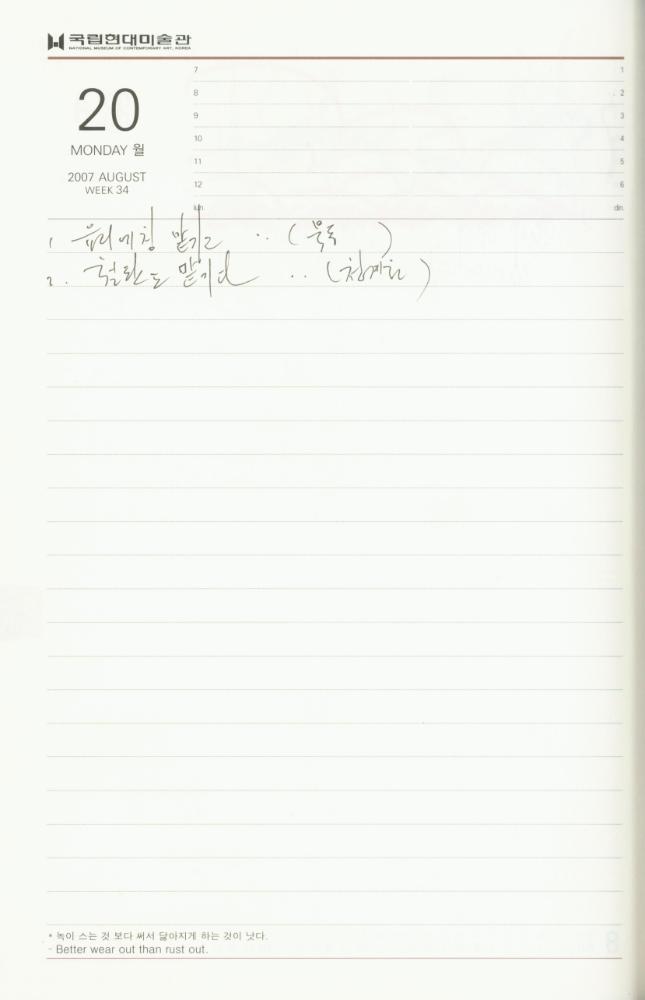 국립현대미술관
NATIONAL MUSEUM OF CONTEMPORARY ART, KOREA
20
MONDAY 월
2007 AUGUST
WEEK 34
7
8
9
10
11
12
lun.
1
2
3
4
5
6
din.
1 유리에칭 맡기고 ‥ ( )
2. 철판도 맡기다 ‥ (청계천)
* 녹이 스는 것 보다 써서 닳아지게 하는 것이 낫다.
- Better wear out than rust out.